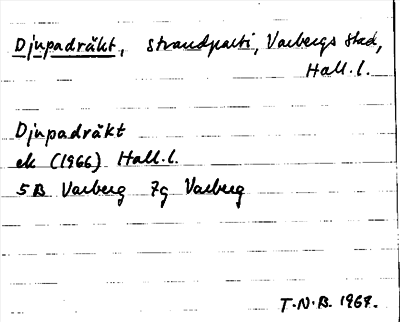 Djupadräkt, strandparti, Varbergs stad,
Hall.l.
Djupadräkt
ek (1966) Hall.l.
5B Varberg 7g Varberg
T.N.B. 1967.